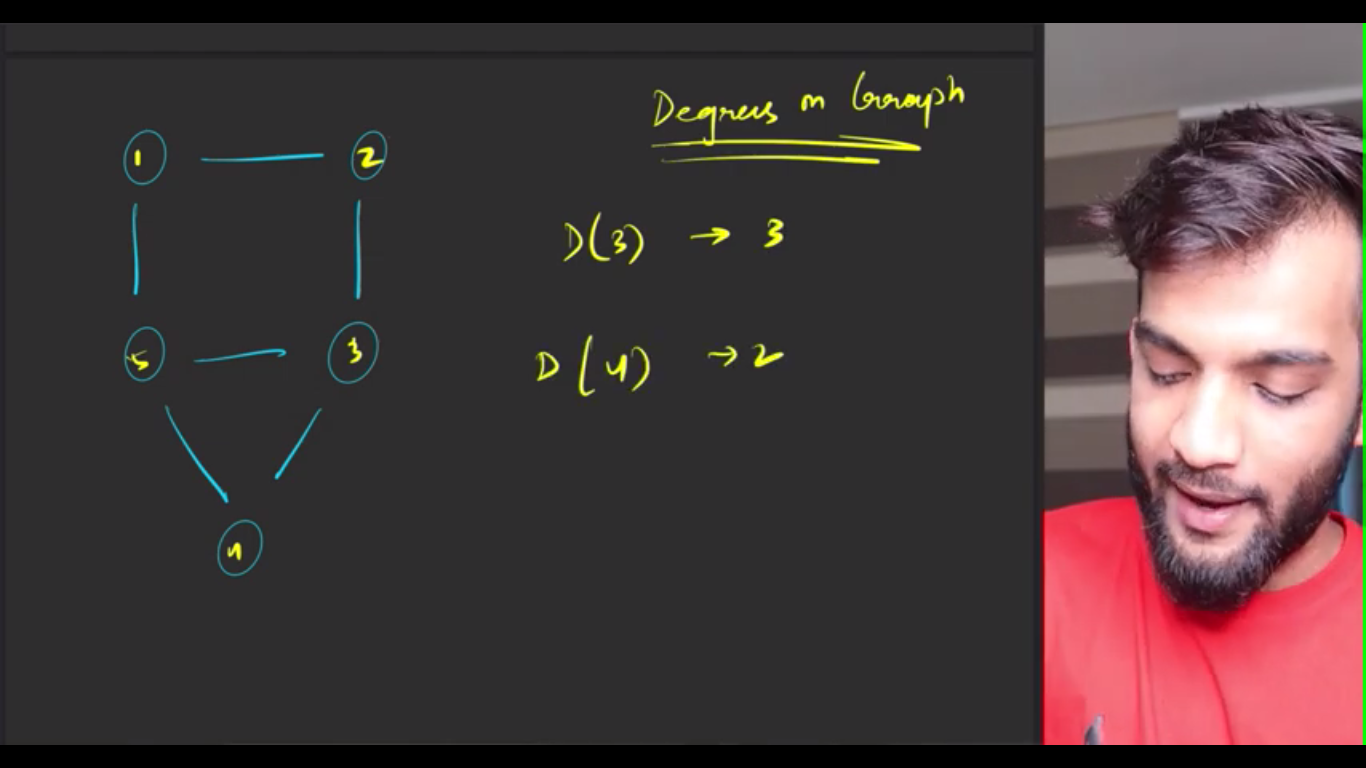 Degrees in Graph
1 2
D(3) → 3
5 3
D(4) → 2
4